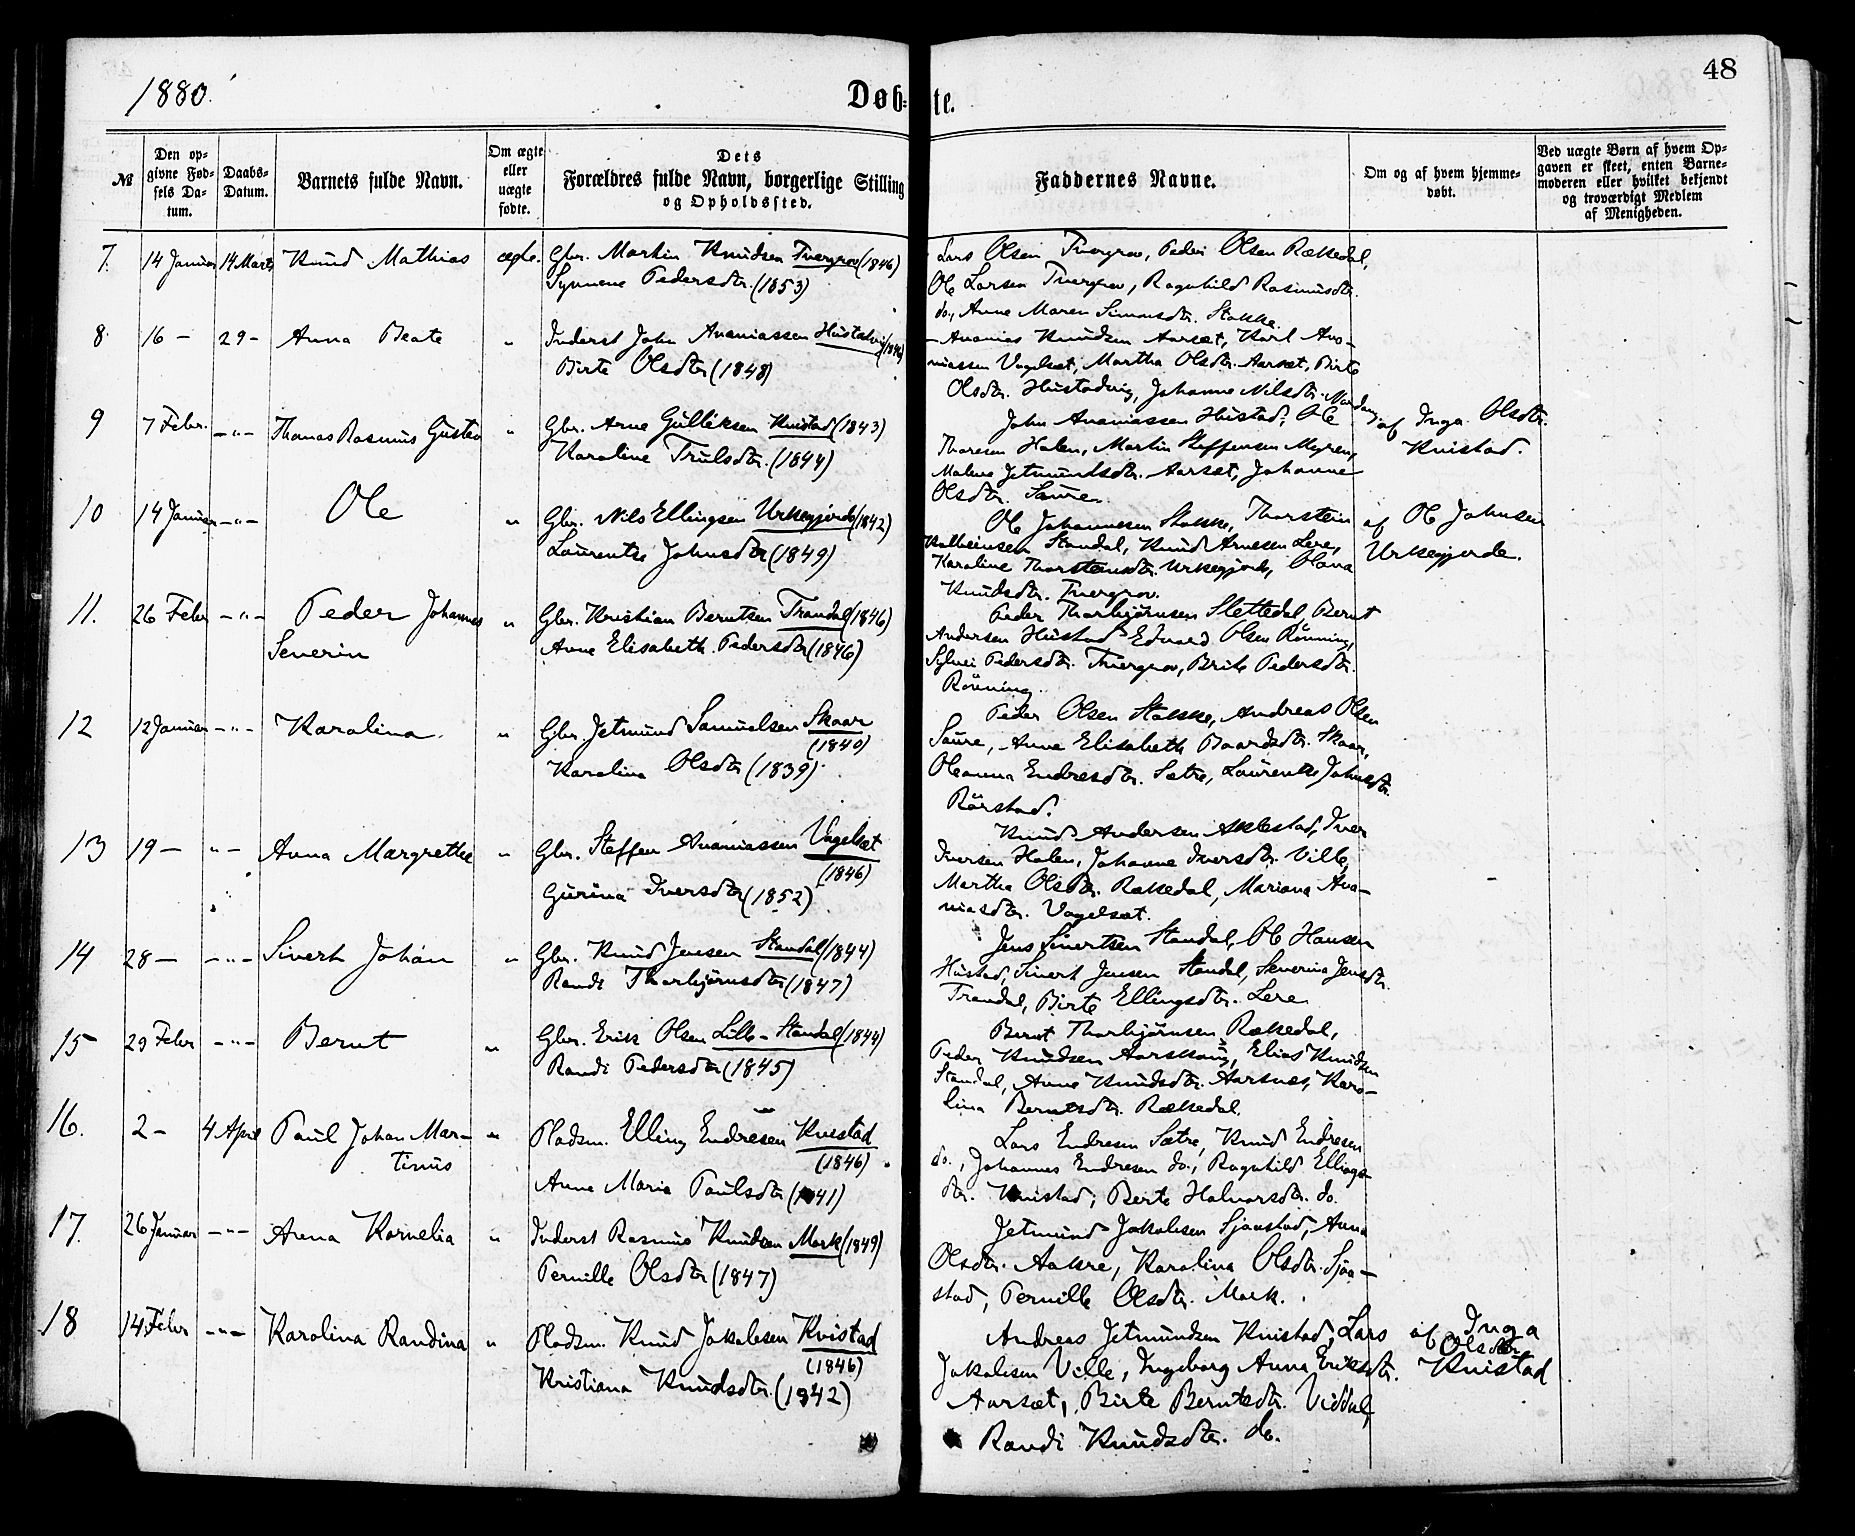 1880.
Døb-
te.
48
№
Den op-
givne Fød-
sels Da-
tum.
Daabs-
Datum.
Barnets fulde Navn.
Om ægte
eller
uægte
fødte.
Dets
Forældres fulde Navn, borgerlige Stilling
og Opholdssted.
Faddernes Navne.
Om og af hvem hjemme-
døbt.
Ved uægte Børn af hvem Op-
gaven er skeet, enten Barne-
moderen eller hvilket bekjendt
og troværdigt Medlem
af Menigheden.
7. 14 Januar 14 Marts Knud Mathias ægte. Gbr. Martin Knudsen Tvergrov (1846)
Synnene Pedersdtr. (1853)
Lars Olsen Tvergrov, Peder Olsen Rækkedal,
Ole Larsen Tvergrov, Ragnhild Rasmusdtr.
do., Anne Maren Simonsdtr. Stokke.
8. 16 - 29 - Anna Beate " Inderst John Ananiassen Hustadvig (1846)
Birte Olsdtr (1848)
Ananias Knudsen Aarsæt, Karl Ana-
niassen Vagelsæt, Martha Olsdtr. Aarsæt, Birte
Olsdtr. Hustadvig, Johanne Nilsdtr. Nordang
9 7 Febr. -"- Thomas Rasmus Gustav " Gbr. Arne Gulliksen Kvistad (1843)
Karoline Trulsdtr. (1844)
John Ananiassen Hustad, Ole
Thoresen Halen, Martin Steffensen Myren,
Malene Jetmundsdtr. Aarsæt, Johanne
Olsdtr. Saure.
af Inga Olsdtr.
Kvistad.
10 14 Januar -"- Ole " Gbr. Nils Ellingsen Urkegjerde (1842)
Laurentse Johnsdtr (1849)
Ole Johannesen Stokke, Thorstein
Kolbeinsen Standal, Knud Arnesen Lere,
Karoline Thorsteinsdtr. Urkegjerde, Olava
Knudsdtr. Tvergrov.
af Ole Johnsen
Urkegjerde.
11. 26 Febr -"- Peder Johannes
Severin
" Gbr. Kristian Berntsen Trandal (1846)
Anne Elisabeth Pedersdtr (1846)
Peder Thorbjørnsen Slettedal, Bernt
Andersen Hustad, Edvard Olsen Rønning,
Sylvei Pedersdtr. Tvergrov, Brite Pedersdtr.
Rønning.
12 12 Januar -"- Karolina. " Gbr. Jetmund Samuelsen Skaar
(1840)
Karolina Olsdtr (1839).
Peder Olsen Stokke, Andreas Olsen
Saure, Anne Elisabeth Baardsdtr. Skaar,
Oleanna Endresdtr. Sætre, Laurentse Johnsdtr.
Rørstad.
13 19 - " - Anna Margrethe " Gbr. Steffen Ananiassen Vagelsæt
(1846)
Gurina Iversdtr (1852)
Knud Andersen Aklestad, Iver
Iversen Halen, Johanne Iversdtr. Ville,
Martha Olsdtr. Rækkedal, Mariana Ana-
niasdtr. Vagelsæt.
14 28 - -"- Sivert Johan " Gbr. Knud Jensen Standal (1844)
Randi Thorbjørnsdtr (1847)
Jens Sivertsen Standal, Ole Hansen
Hustad, Sivert Jensen Standal, Severina Jensdtr.
Trandal, Birte Ellingsdtr. Lere
15 29 Febr -"- Bernt " Gbr. Erik Olsen Lille-Standal (1844)
Randi Pedersdtr (1845)
Bernt Thorbjørnsen Rækkedal,
Peder Knudsen Aarskoug, Elias Knudsen
Standal, Anne Knudsdtr. Aarsnes, Karo-
lina Berntsdtr. Rækkedal.
16. 2 - 4 April Paul Johan Mar-
tinus
" Pladsm. Elling Endresen Kvistad
(1846)
Anne Maria Paulsdtr (1841)
Lars Endresen Sætre, Knud Endresen
do., Johannes Endresen do., Ragnhild Ellings-
dtr. Kvistad, Berte Halvorsdtr. do.
17. 26 Januar -"- Anna Kornelia " Inderst Rasmus Knudsen Mork (1849)
Pernille Olsdtr (1847)
Jetmund Jakobsen Sjaastad, Anna
Olsdtr. Aakre, Karolina Olsdtr. Sjaa-
stad, Pernille Olsdtr. Mork.
18 14 Febr -"- Karolina Randina " Pladsm. Knud Jakobsen Kvistad
(1846)
Kristiana Knudsdtr. (1842)
Andreas Jetmundsen Kvistad, Lars
Jakobsen Ville, Ingeborg Anna Eriksdtr.
Aarsæt, Birte Berntsdtr. Viddal,
Randi Knudsdtr. do.
af Inga
Olsdtr.
Kvistad